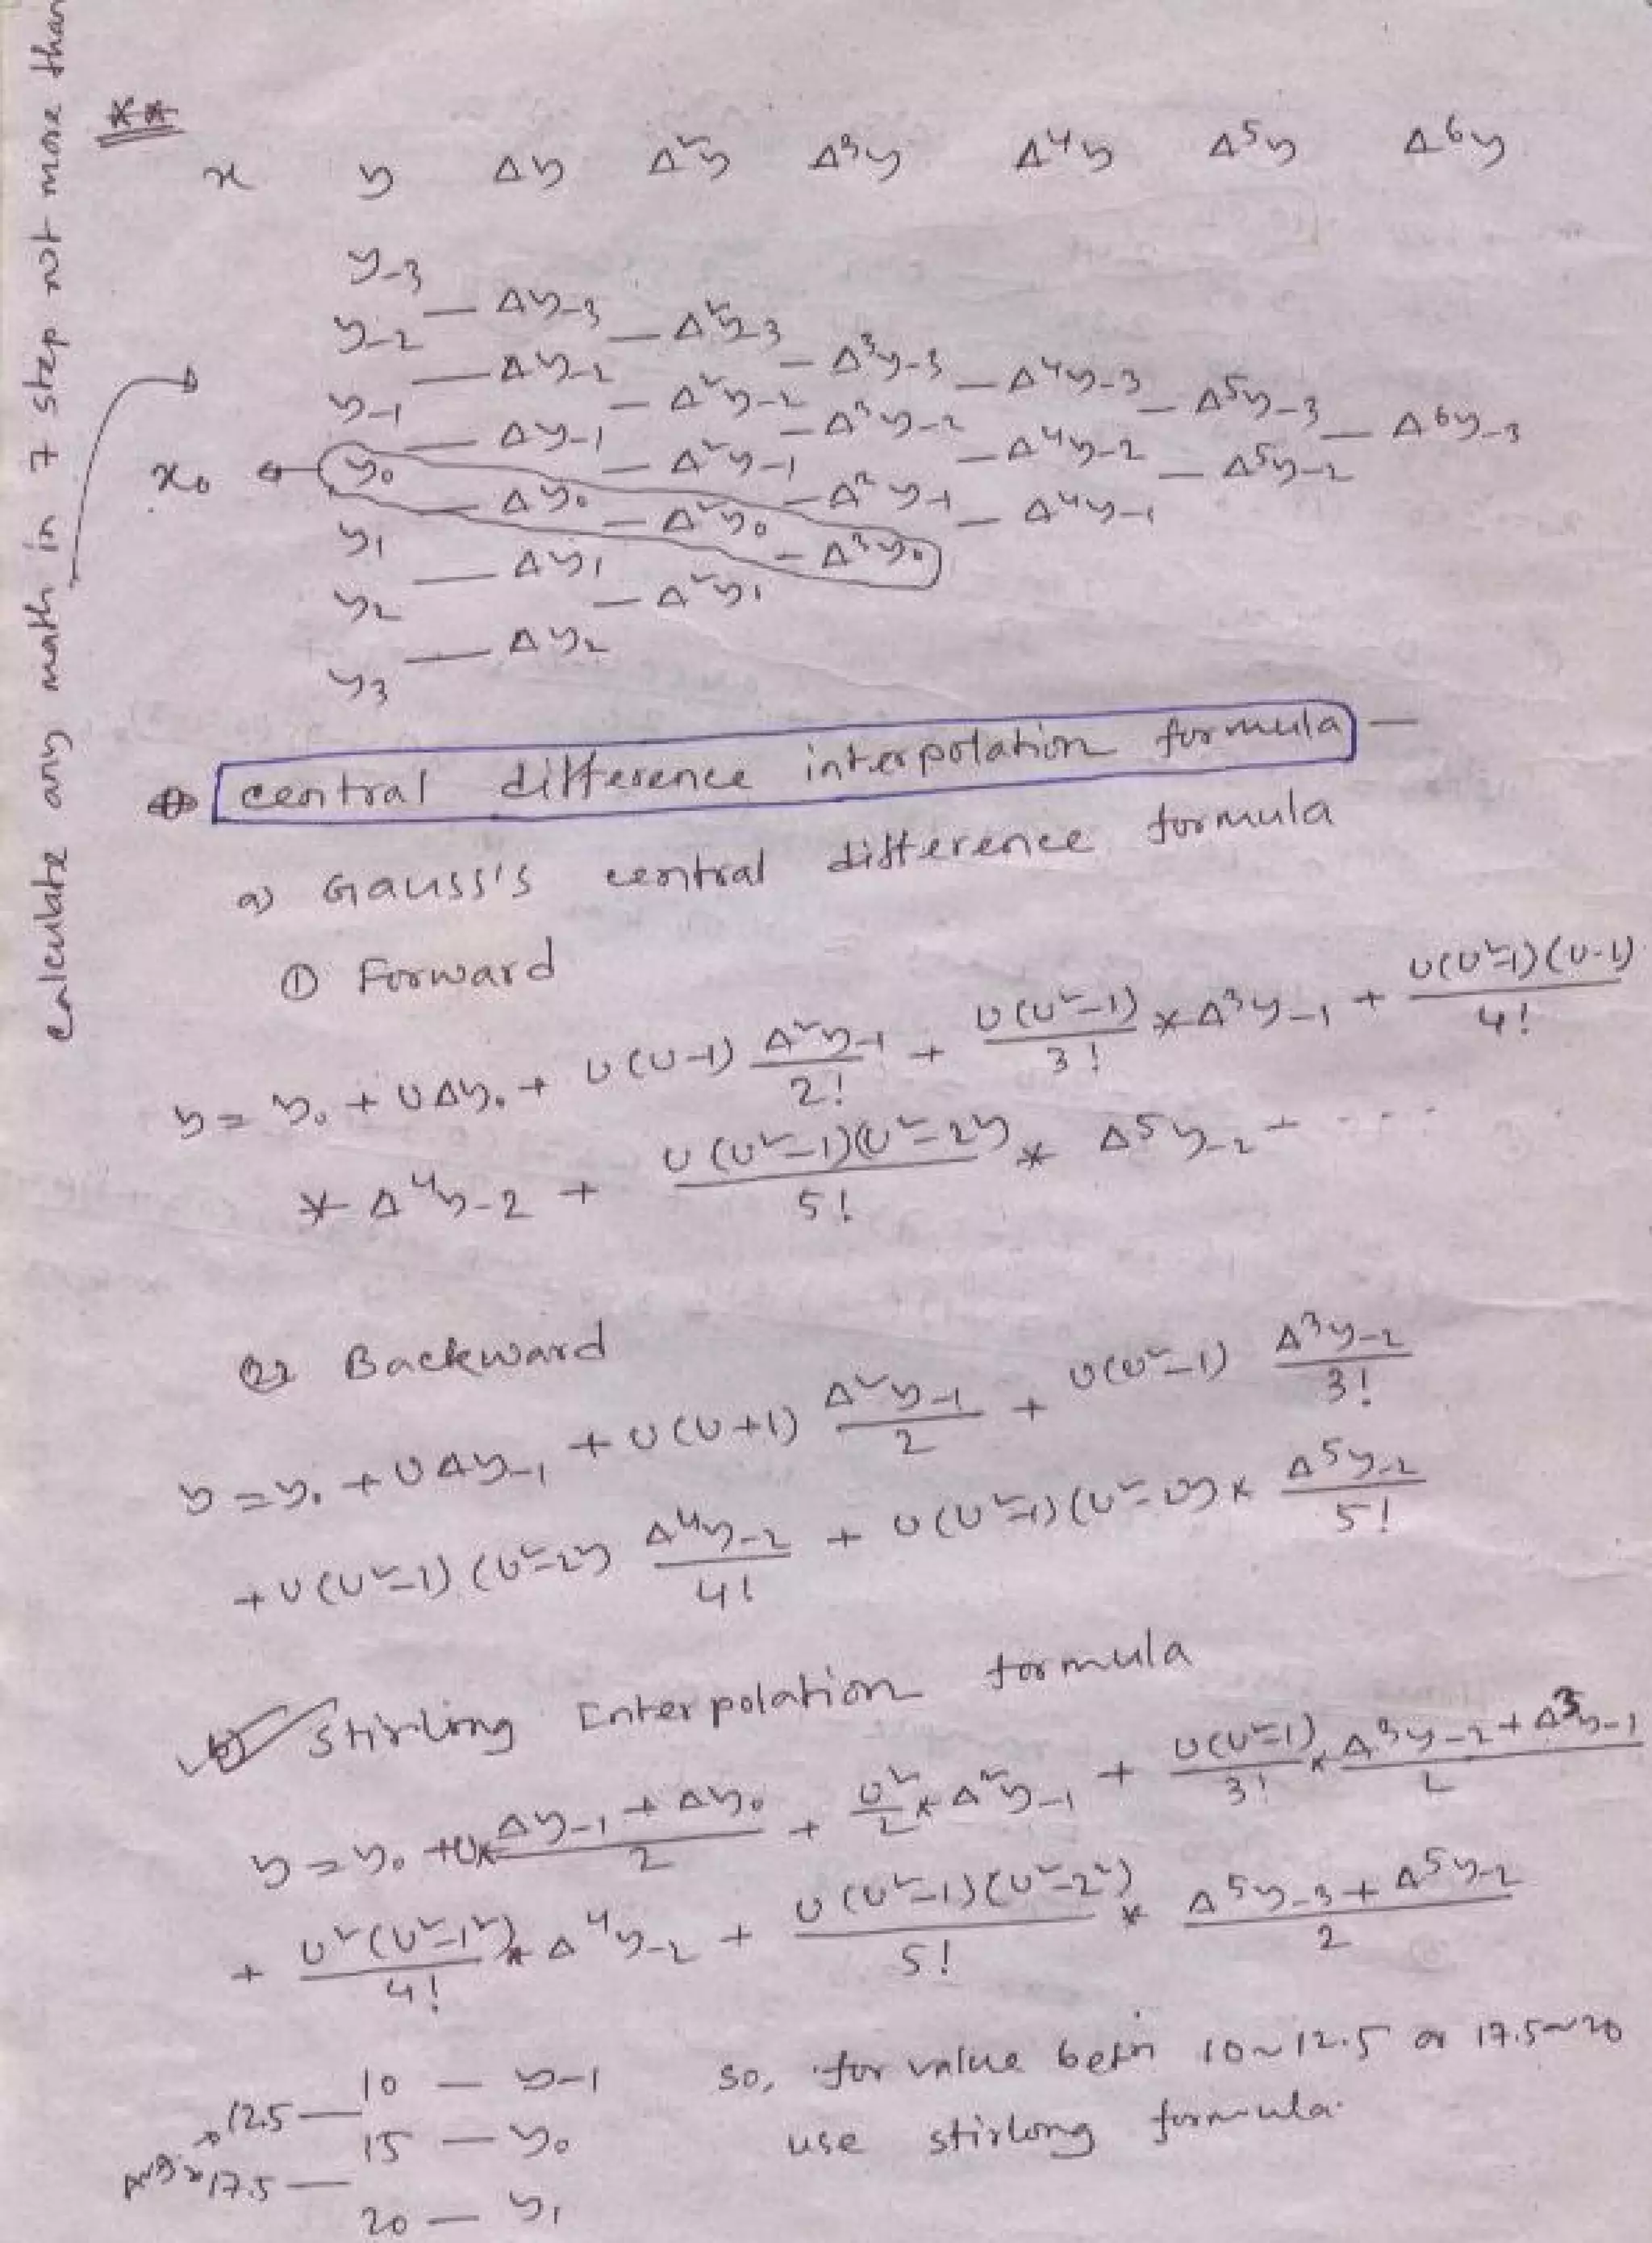 calculate any math in 7 step not more than
**
x y Δy Δ²y Δ³y Δ⁴y Δ⁵y Δ⁶y
y₋₃
— Δy₋₃
y₋₂ — Δ²y₋₃
— Δy₋₂ — Δ³y₋₃
y₋₁ — Δ²y₋₂ — Δ⁴y₋₃
— Δy₋₁ — Δ³y₋₂ — Δ⁵y₋₃
x₀ ← y₀ — Δ²y₋₁ — Δ⁴y₋₂ — Δ⁶y₋₃
— Δy₀ — Δ³y₋₁ — Δ⁵y₋₂
y₁ — Δ²y₀ — Δ⁴y₋₁
— Δy₁ — Δ³y₀
y₂ — Δ²y₁
— Δy₂
y₃
central difference interpolation formula —
a) Gauss's central difference formula
① Forward
y = y₀ + UΔy₀ + U(U-1) Δ²y₋₁/2! + U(U²-1)/3! * Δ³y₋₁ + U(U²-1)(U-2)/4!
* Δ⁴y₋₂ + U(U²-1)(U²-2²)/5! * Δ⁵y₋₂ + ....
② Backward
y = y₀ + UΔy₋₁ + U(U+1) Δ²y₋₁/2 + U(U²-1) Δ³y₋₂/3!
+ U(U²-1)(U²-2²) Δ⁴y₋₂/4! + U(U²-1)(U²-2²) * Δ⁵y₋₂/5!
b) Stirling Interpolation formula
y = y₀ + U * (Δy₋₁ + Δy₀)/2 + U²/2 * Δ²y₋₁ + U(U²-1)/3! * (Δ³y₋₂ + Δ³y₋₁)/2
+ U²(U²-1²)/4! * Δ⁴y₋₂ + U(U²-1)(U²-2²)/5! * (Δ⁵y₋₃ + Δ⁵y₋₂)/2
10 — y₋₁
12.5 —
15 — y₀
Avg 17.5 —
20 — y₁
so, for value betn 10~12.5 or 17.5~20
use stirlong formula.